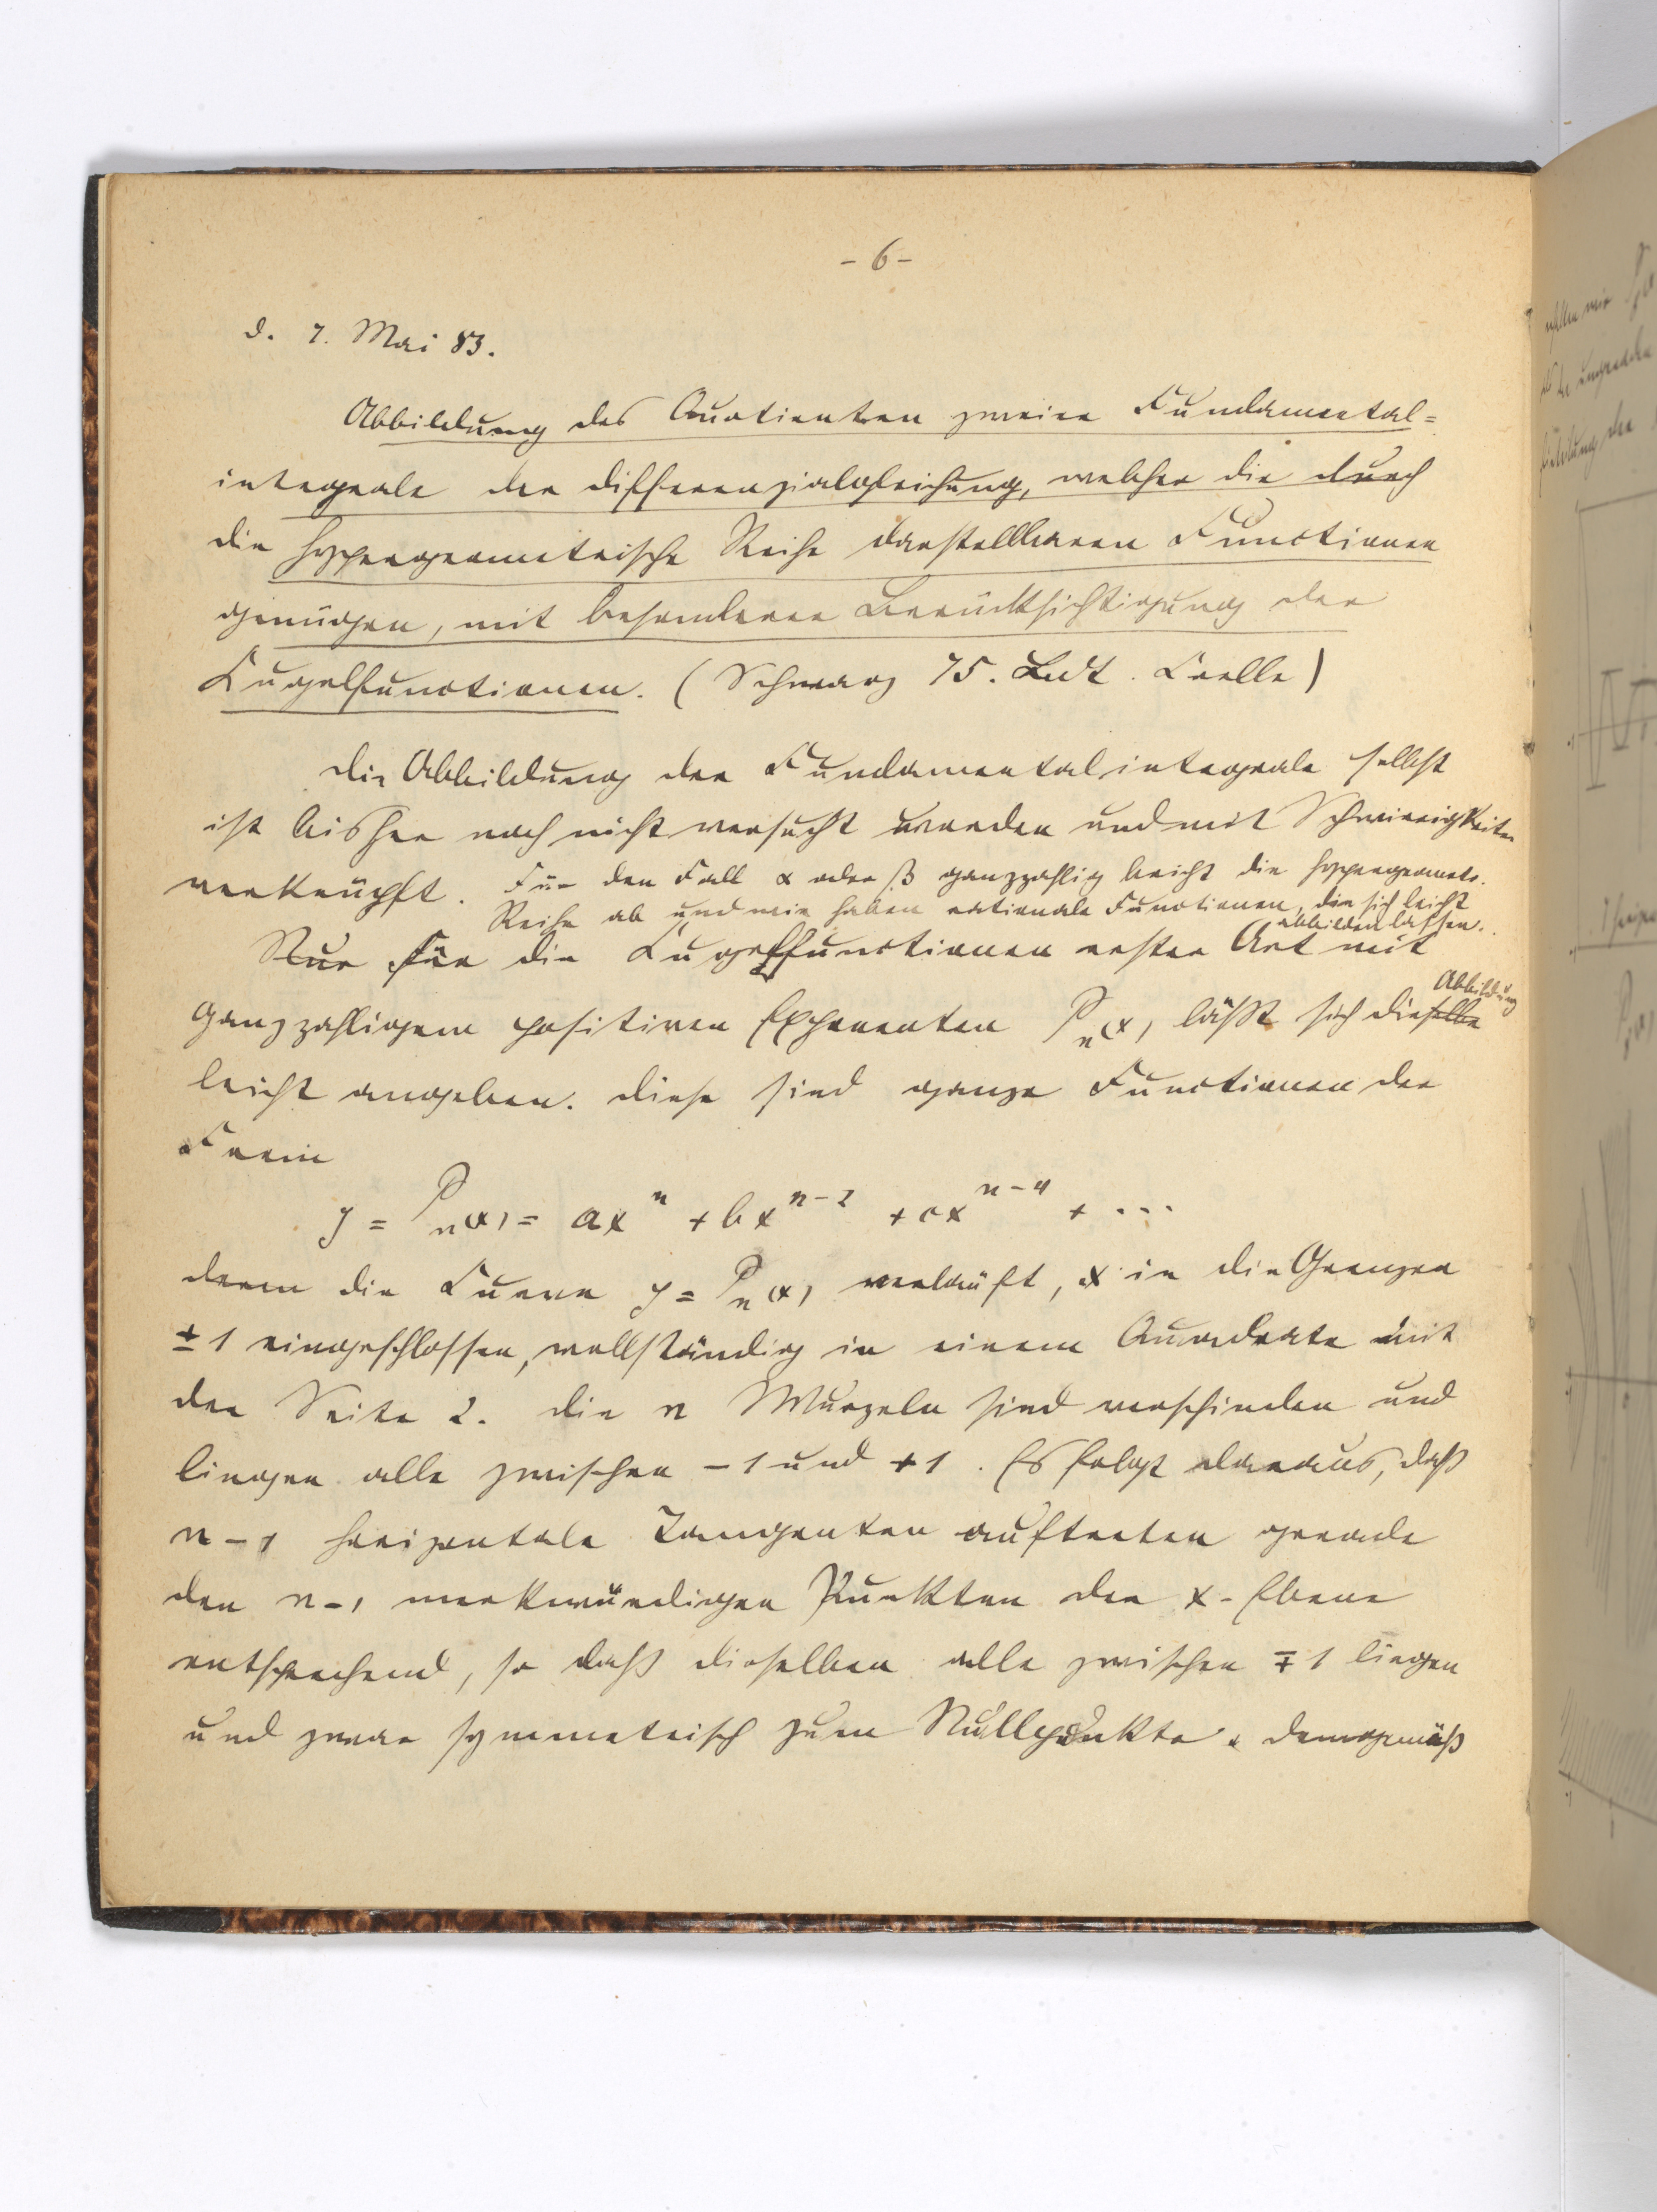 - 6 -
d. 7. Mai 83.
Abbildung des Quotienten zweier Fundamental=
integrale der Differenzialgleichung, welcher die durch
die hypergeometrische Reihe darstellbaren Functionen
genügen, mit besonderer Berücksichtigung der
Kugelfunctionen. (Schwarz 75. Bd. Crelle)
Die Abbildung der Fundamentalintegrale selbst
ist bisher noch nicht versucht worden und mit Schwierigkeiten
verknüpft. Für den Fall α oder β ganzzahlig bricht die hypergeometr.
Reihe ab und wir haben rationale Functionen, die sich leicht
abbilden lassen.
Nur für die Kugelfunctionen erster Art mit
Abbildung
ganzzahligem positiven Exponenten P_n(x) läßt sich dieselbe
leicht angeben. Diese sind ganze Functionen der
Form
y = P_n(x) = ax^n + bx^{n-2} + cx^{n-4} + ...
deren die Curve y = P_n(x) verläuft, x in die Grenzen
± 1 eingeschlossen, vollständig in einem Quadrate mit
der Seite 2. Die n Wurzeln sind verschieden und
liegen alle zwischen -1 und +1. Es folgt daraus, daß
n-1 horizontale Tangenten auftreten gerade
den n-1 merkwürdigen Punkten der x-Ebene
entsprechend, so daß dieselben alle zwischen ∓ 1 liegen
und zwar symmetrisch zum Nullpunkte. Demgemäß